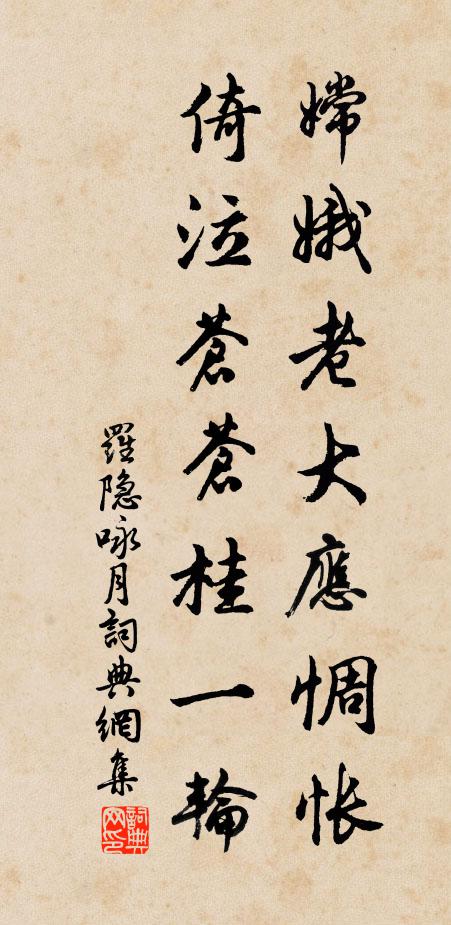 嫦娥老大應惆怅
倚泣蒼蒼桂一輪
羅隐咏月詞典網集
詞典网印